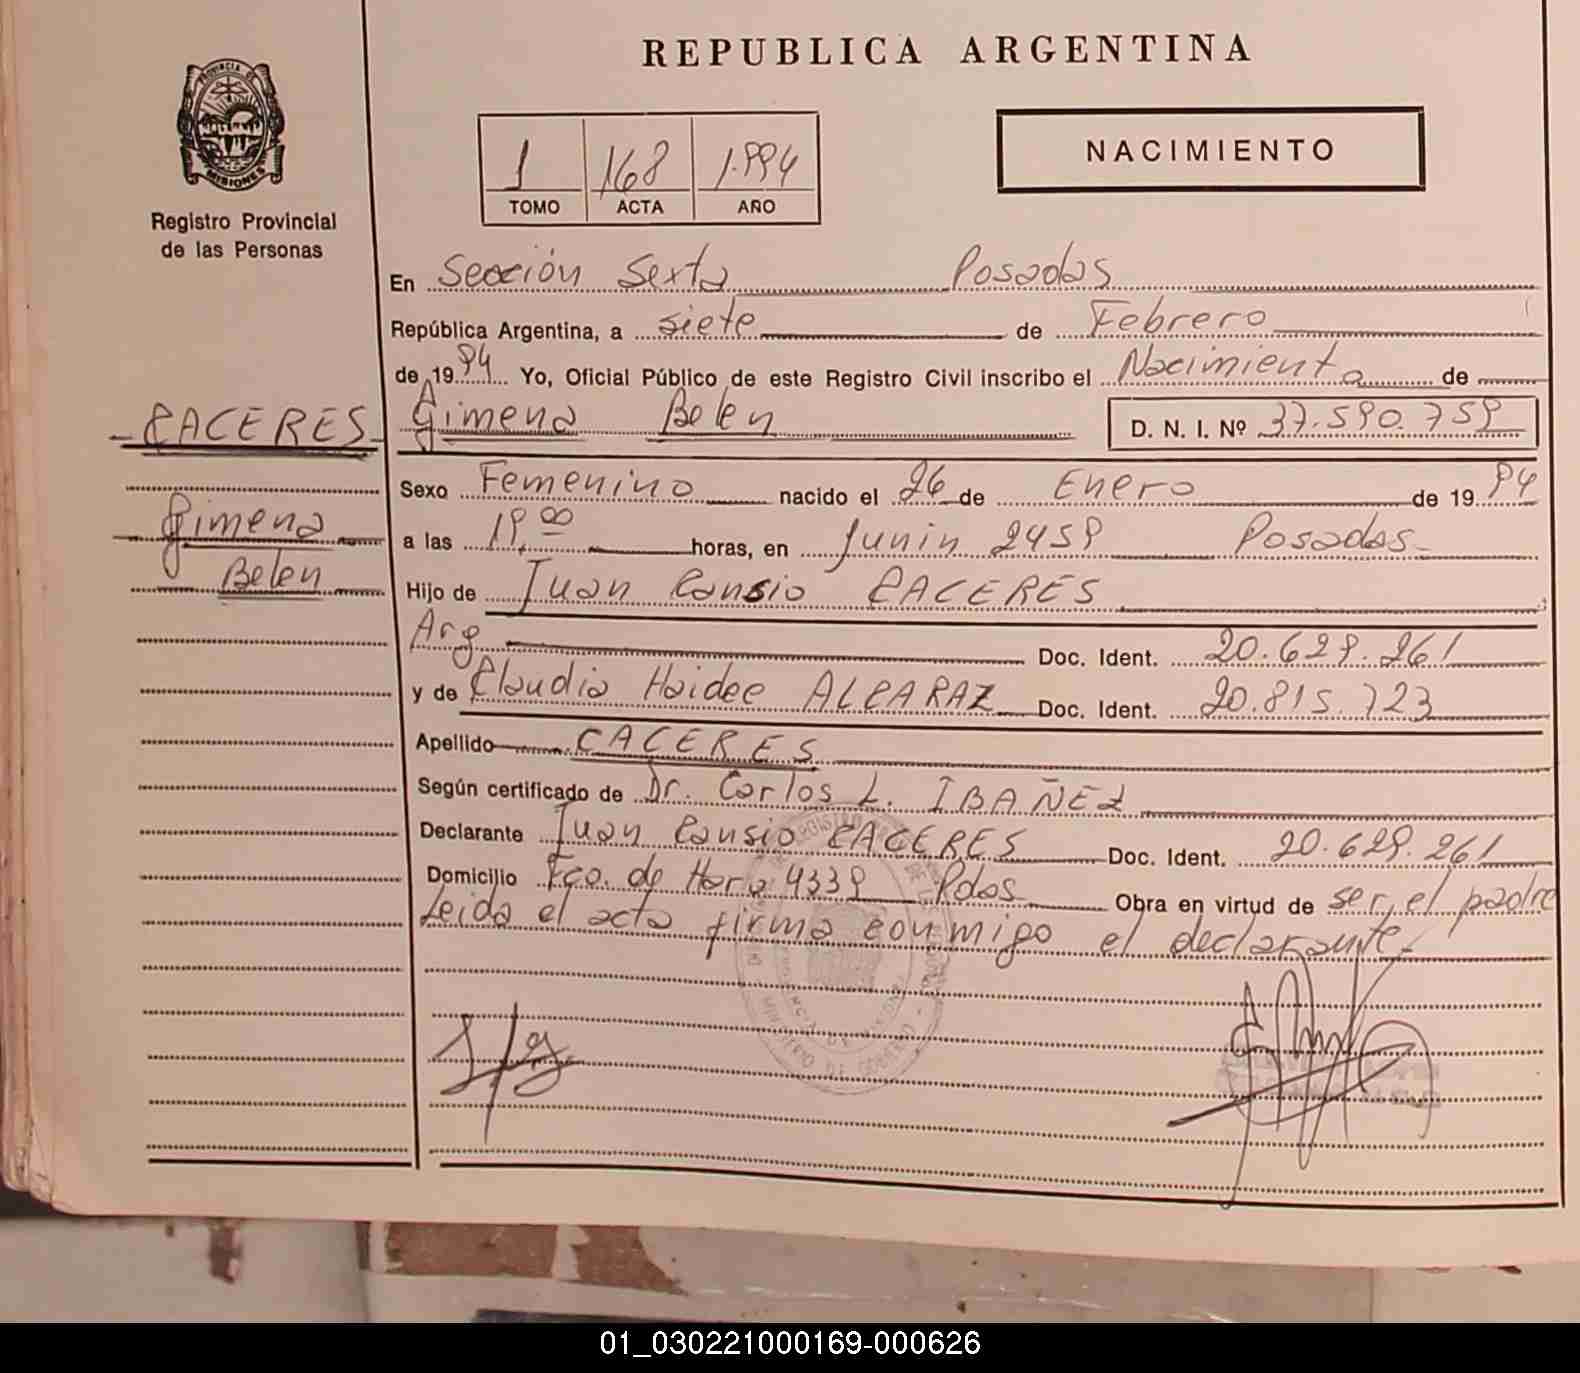 REPUBLICA ARGENTINA
PROVINCIA DE
MISIONES
Registro Provincial
de las Personas
NACIMIENTO
1 168 1.994
TOMO ACTA AÑO
En Sección Sexta Posadas
República Argentina, a siete de Febrero
de 1994 Yo, Oficial Público de este Registro Civil inscribo el Nacimiento de
CACERES Gimena Belen D. N. I. Nº 37.590.759
Sexo Femenino nacido el 26 de Enero de 1994
Gimena
a las 19,00 horas, en Junin 2459 Posadas-
Belen
Hijo de Juan Cansio CACERES
Arg Doc. Ident. 20.629.261
y de Claudia Haidee ALCARAZ Doc. Ident. 20.815.723
Apellido CACERES
Según certificado de Dr. Carlos L. IBAÑEZ
Declarante Juan Cansio CACERES Doc. Ident. 20.629.261
Domicilio Fco. de Haro 4339 Pdas Obra en virtud de ser, el padre
Leida el acta firma conmigo el declarante.-
MINISTERIO DE GOBIERNO
01_030221000169-000626